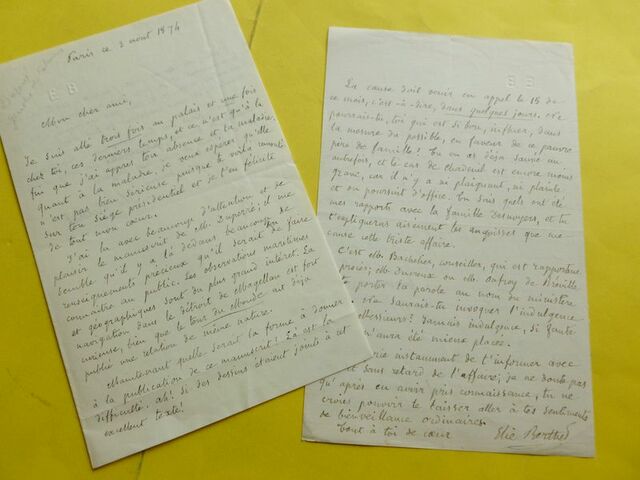 Paris ce 2 aout 1874
E B
Mon cher ami,
Je suis allé trois fois au palais et une fois
chez toi, ces derniers temps, et ce n'est qu'à la
fin que j'ai appris ton absence et ta maladie.
quant à la maladie, je veux espérer qu'elle
n'est pas bien sérieuse puisque te voilà remonté
sur ton siège présidentiel et je t'en félicite
de tout mon cœur.
J'ai lu avec beaucoup d'attention et de
plaisir le manuscrit de M. Duperré; il me
semble qu'il y a là dedans beaucoup de
renseignements précieux qu'il serait de faire
connaitre au public. Les observations maritimes
et géographiques sont du plus grand intérêt. La
navigation dans le détroit de Magellan est fort
curieuse, bien que le tour du Monde ait déjà
publié une relation de même nature.
Maintenant quelle serait la forme à donner
à la publication de ce manuscrit? Là est la
difficulté. ah! si des dessins étaient joints à cet
excellent texte!
E B
La cause doit venir en appel le 15 de
ce mois, c'est-à-dire, dans quelques jours. Ne
pourrais-tu, toi qui est si bon, influer, dans
la mesure du possible, en faveur de ce pauvre
père de famille? Tu en as déjà sauvé un
autrefois, et le cas de est encore moins
grave, car il n'y a ni plaignant, ni plainte,
et on poursuit d'office. Tu sais quels ont été
mes rapports avec la famille Desnoyers, et tu
t'expliqueras aisément les angoisses que me
cause cette triste affaire.
C'est M. Bachelier, conseiller, qui est rapporteur.
M. ou M. Aufroy de Bréville
porter la parole au nom du ministère
Ne saurais-tu invoquer l'indulgence
Messieurs? Jamais indulgence, si faute
n'aura été mieux placé.
instamment de t'informer avec
et sans retard de l'affaire; je ne doute pas
qu'après en avoir pris connaissance, tu ne
croies pouvoir te laisser aller à tes sentiments
de bienveillance ordinaires.
tout à toi de cœur
Elie Berthet